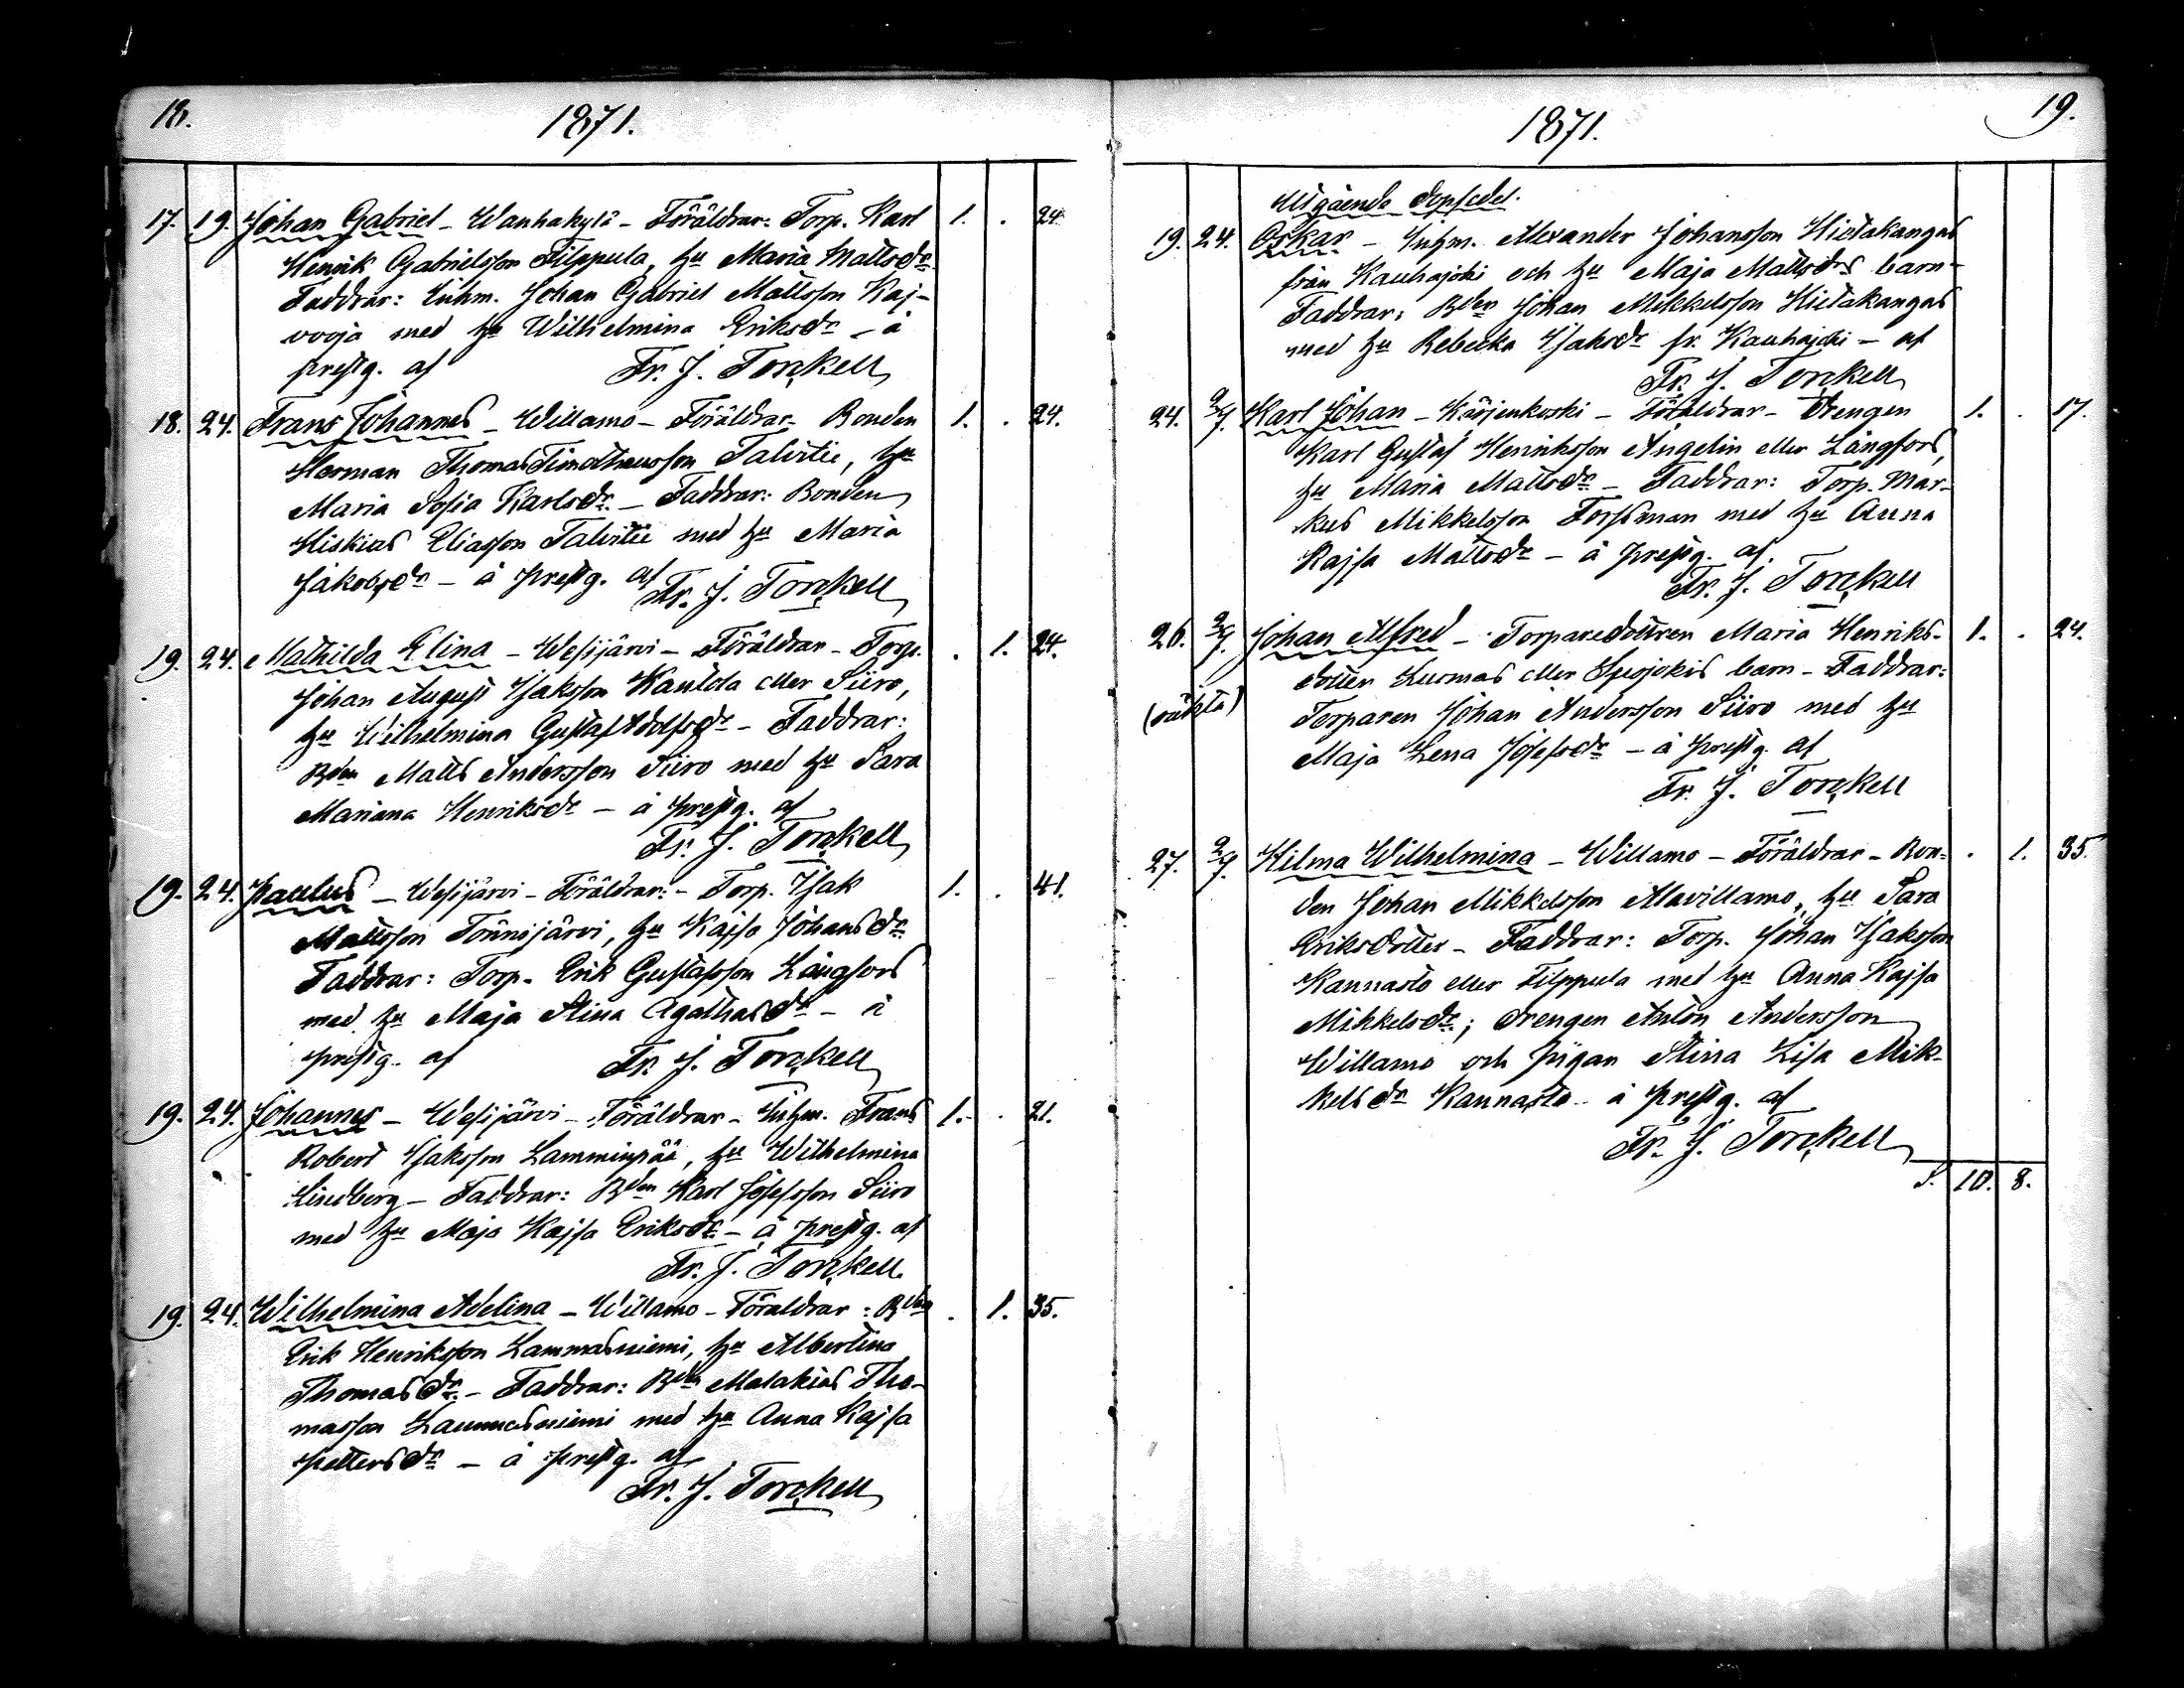 18.
1871.
17. 19. Johan Gabriel - Wanhakylä - Föräldrar: Torp. Karl 1. . 24.
Henrik Gabrielsson Filppula, hu Maria Mattsdr.
Faddrar: Inhm. Johan Gabriel Mattsson Kaj-
vooja med hu Wilhelmina Eriksdr - å
prestg. af Fr. J. Torckell
18. 24. Frans Johannes - Willamo - Föräldrar - Bonden 1. . 24.
Herman Thomas Timotheusson Talvitie, hu
Maria Sofia Karlsdr. - Faddrar: Bonden
Hiskias Eliasson Talvitie med hu Maria
Jakobsdr - å prestg. af Fr. J. Torckell
19. 24. Mathilda Elina - Wesijärvi - Föräldrar - Torp. . 1. 24.
Johan August Isaksson Kantola eller Siiro,
hu Wilhelmina Gustaf Adolfsdr - Faddrar:
Bden Matts Andersson Siiro med hu Sara
Mariana Henriksdr - å prestg. af
Fr. J. Torckell
19. 24. Paulus - Wesijärvi - Föräldrar: - Torp. Isak 1. . 41.
Mattsson Tönnijärvi, hu Kajsa Johansdr.
Faddrar: Torp. Erik Gustafsson Långfors
med hu Maja Stina Agathasdr - å
prestg. af Fr. J. Torckell
19. 24. Johannes - Wesijärvi - Föräldrar - Inhm. Frans 1. . 21.
Robert Isaksson Lamminpää, hu Wilhelmina
Lindberg - Faddrar: Bden Karl Josefsson Siiro
med hu Maja Kajsa Eriksdr - å prestg. af
Fr. J. Torckell
19. 24. Wilhelmina Adelina - Willamo - Föräldrar: Bden . 1. 35.
Erik Henriksson Lammasniemi, hu Albertina
Thomasdr. - Faddrar: Bden Malakias Tho-
masson Lammasniemi med hu Anna Kajsa
Pettersdr - å prestg. af
Fr. J. Torckell
1871.
19.
Utgående dopsedel.
19. 24. Oskar - Inhm. Alexander Johansson Hietakangas
från Kauhajoki och hu Maja Mattsdrs barn -
Faddrar: Bden Johan Mikkelsson Hietakangas
med hu Rebecka Isaksdr fr. Kauhajoki - af
Fr. J. Torckell
24. 2/7. Karl Johan - Kärjenkoski - Föräldrar - Drengen 1. . 17.
Karl Gustaf Henriksson Angelin eller Långfors,
hu Maria Mattsdr - Faddrar: Torp. Mar-
kus Mikkelsson Forssman med hu Anna
Kajsa Mattsdr - å prestg. af
Fr. J. Torckell
26. 2/7. Johan Alfred - Torparedottren Maria Henriks- 1. . 24.
dotter Luomas eller Susjokis barn - Faddrar:
(oäkta) Torparen Johan Andersson Siiro med hu
Maja Lena Josefsdr - å prestg. af
Fr. J. Torckell
27. 2/7. Hilma Wilhelmina - Willamo - Föräldrar - Bon- . 1. 35.
den Johan Mikkelsson Alavillamo, hu Sara
Eriksdotter - Faddrar: Torp. Johan Isaksson
Kannasto eller Filppula med hu Anna Kajsa
Mikkelsdr; drengen Anton Andersson
Willamo och pigan Stina Lisa Mik-
kelsdr Kannasto - å prestg. af
Fr. J. Torckell
S. 10. 8.